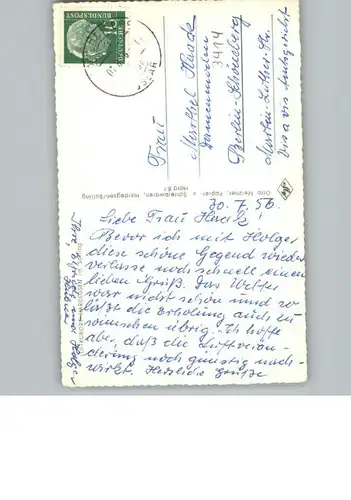 30.7.56.
Liebe Frau Haack!
Bevor ich mit Holger
diese schöne Gegend wieder
verlasse noch schnell einen
lieben Gruß. Das Wetter
war nicht schön und so
läßt die Erholung auch zu
wünschen übrig. Ich hoffe
aber, daß die Luftverän-
derung noch günstig nach-
wirkt. Herzliche Grüße
Otto Metzner, Papier- u. Schreibwaren, Hardegsen/Solling
Hard 8
DEUTSCHE BUNDESPOST
10
Frau
Damenmoden
3414
Berlin-Schöneberg
Martin-Luther-Str.
vis a vis Amtsgericht